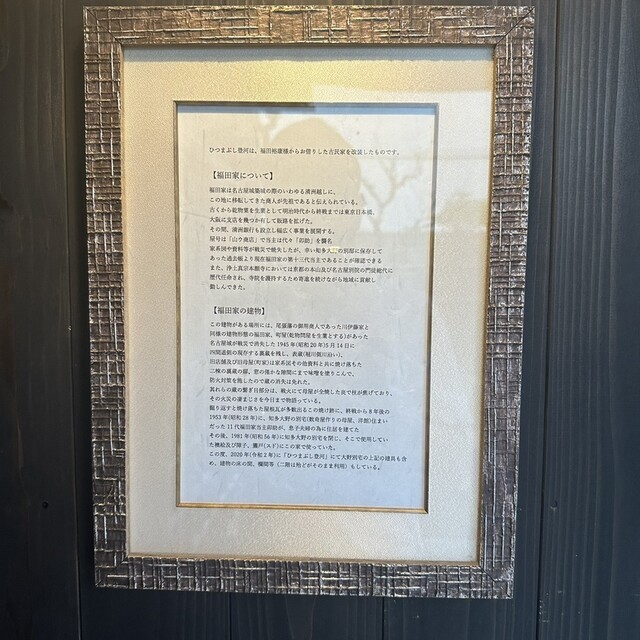 ひつまぶし登河は、福田裕康様からお借りした古民家を改装したものです。
【福田家について】
福田家は名古屋城築城の際のいわゆる清洲越しに、
この地に移転してきた商人が先祖であると伝えられている。
古くから乾物業を生業として明治時代から終戦までは東京日本橋、
大阪に支店を幾つか有して販路を拡げた。
その間、清洲銀行も設立し幅広く事業を展開する。
屋号は「山ウ商店」で当主は代々「卯助」を襲名
家系図や資料等が戦災で焼失したが、幸い知多大野の別邸に保存して
あった過去帳より現在福田家の第十三代当主であることが確認できる
また、浄土真宗本願寺においては京都の本山及び名古屋別院の門徒総代に
歴代任命され、寺院を護持するため寄進を続けながら地域に貢献し
勤しんできた。
【福田家の建物】
この建物がある場所には、尾張藩の御用商人であった川伊藤家と
同様の建物形態の福田家、町屋(乾物問屋を生業とする)があった
名古屋城が戦災で消失した 1945 年(昭和 20 年)5 月 14 日に
四間道側の現存する裏蔵を残し、表蔵(堀川側川沿い)、
旧店舗及び旧母屋(町家)は家系図その他資料と共に焼け落ちた
二棟の裏蔵の扉、窓の僅かな隙間にまで味噌を塗りこんで、
防火対策を施したので蔵の消失は免れた。
其れらの蔵の繋ぎ目部分は、戦火にて母屋が全焼した炎で柱が焦げており、
その火災の凄まじさを今日まで物語っている。
掘り返すと焼け落ちた屋根瓦が多数出るこの焼け跡に、終戦から 8 年後の
1953 年(昭和 28 年)に、知多大野の別宅(数奇屋作りの母屋、洋館)住まい
だった 11 代福田家当主卯助が、息子夫婦の為に住居を建てた
その後、1981 年(昭和 56 年)に知多大野の別宅を閉じ、そこで使用してい
た襖絵及び障子、簾戸(スド)にこの家で使っていた。
この度、2020 年(令和 2 年)に「ひつまぶし登河」にて大野別宅の上記の建具も含
め、建物の床の間、欄間等（二階は殆どがそのまま利用）もしている。